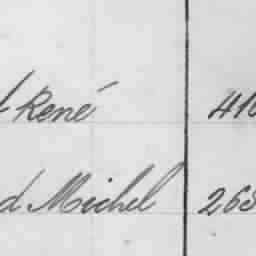 René 410
d Michel 268